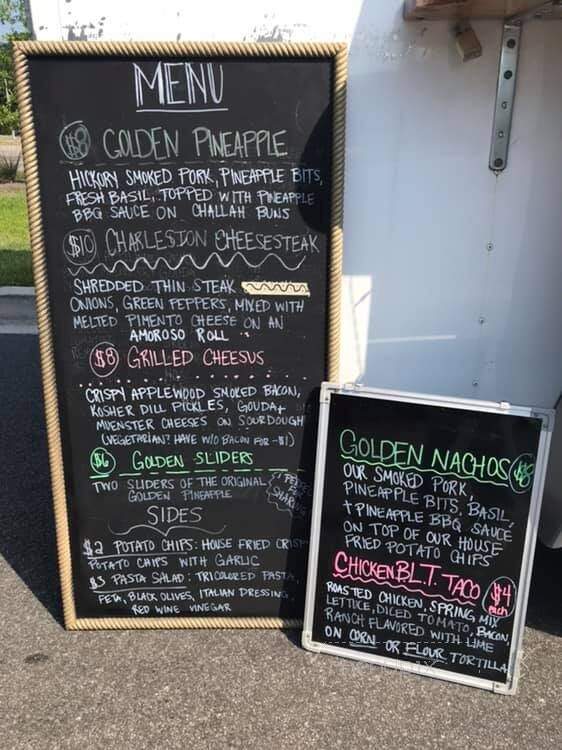 MENU
$8 GOLDEN PINEAPPLE
HICKORY SMOKED PORK, PINEAPPLE BITS,
FRESH BASIL, TOPPED WITH PINEAPPLE
BBQ SAUCE ON CHALLAH BUNS
$10 CHARLESTON CHEESESTEAK
SHREDDED THIN STEAK
ONIONS, GREEN PEPPERS, MIXED WITH
MELTED PIMENTO CHEESE ON AN
AMOROSO ROLL
$8 GRILLED CHEESUS
CRISPY APPLEWOOD SMOKED BACON,
KOSHER DILL PICKLES, GOUDA+
MUENSTER CHEESES ON SOURDOUGH
(VEGETARIAN? HAVE W/O BACON FOR -$1)
$6 GOLDEN SLIDERS
TWO SLIDERS OF THE ORIGINAL
GOLDEN PINEAPPLE
SIDES
$2 POTATO CHIPS: HOUSE FRIED CRISP
POTATO CHIPS WITH GARLIC
$3 PASTA SALAD: TRICOLORED PASTA,
FETA, BLACK OLIVES, ITALIAN DRESSING,
RED WINE VINEGAR
GOLDEN NACHOS $8
OUR SMOKED PORK,
PINEAPPLE BITS, BASIL,
+ PINEAPPLE BBQ SAUCE
ON TOP OF OUR HOUSE
FRIED POTATO CHIPS
CHICKEN B.L.T. TACO $4 each
ROASTED CHICKEN, SPRING MIX
LETTUCE, DICED TOMATO, BACON,
RANCH FLAVORED WITH LIME
ON CORN OR FLOUR TORTILLA